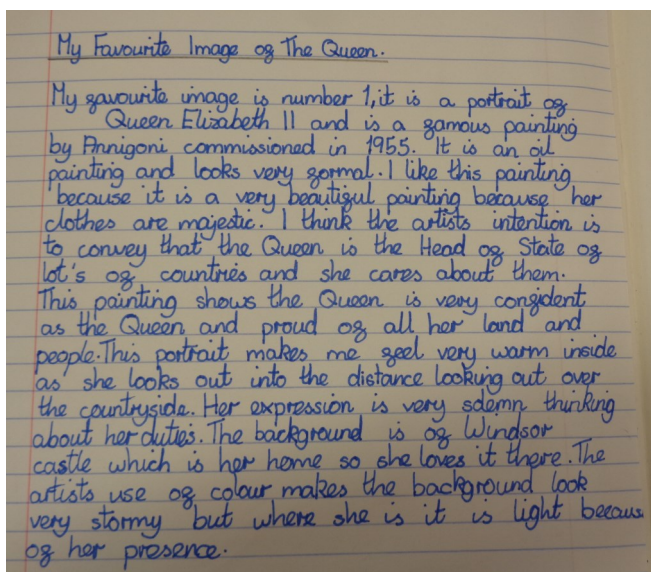 My Favourite Image of The Queen.
My favourite image is number 1, it is a portrait of
Queen Elizabeth II and is a famous painting
by Annigoni commissioned in 1955. It is an oil
painting and looks very formal. I like this painting
because it is a very beautiful painting because her
clothes are majestic. I think the artists intention is
to convey that the Queen is the Head of State of
lot's of countries and she cares about them.
This painting shows the Queen is very confident
as the Queen and proud of all her land and
people. This portrait makes me feel very warm inside
as she looks out into the distance looking out over
the countryside. Her expression is very solemn thinking
about her duties. The background is of Windsor
castle which is her home so she loves it there. The
artists use of colour makes the background look
very stormy but where she is it is light becaus
of her presence.